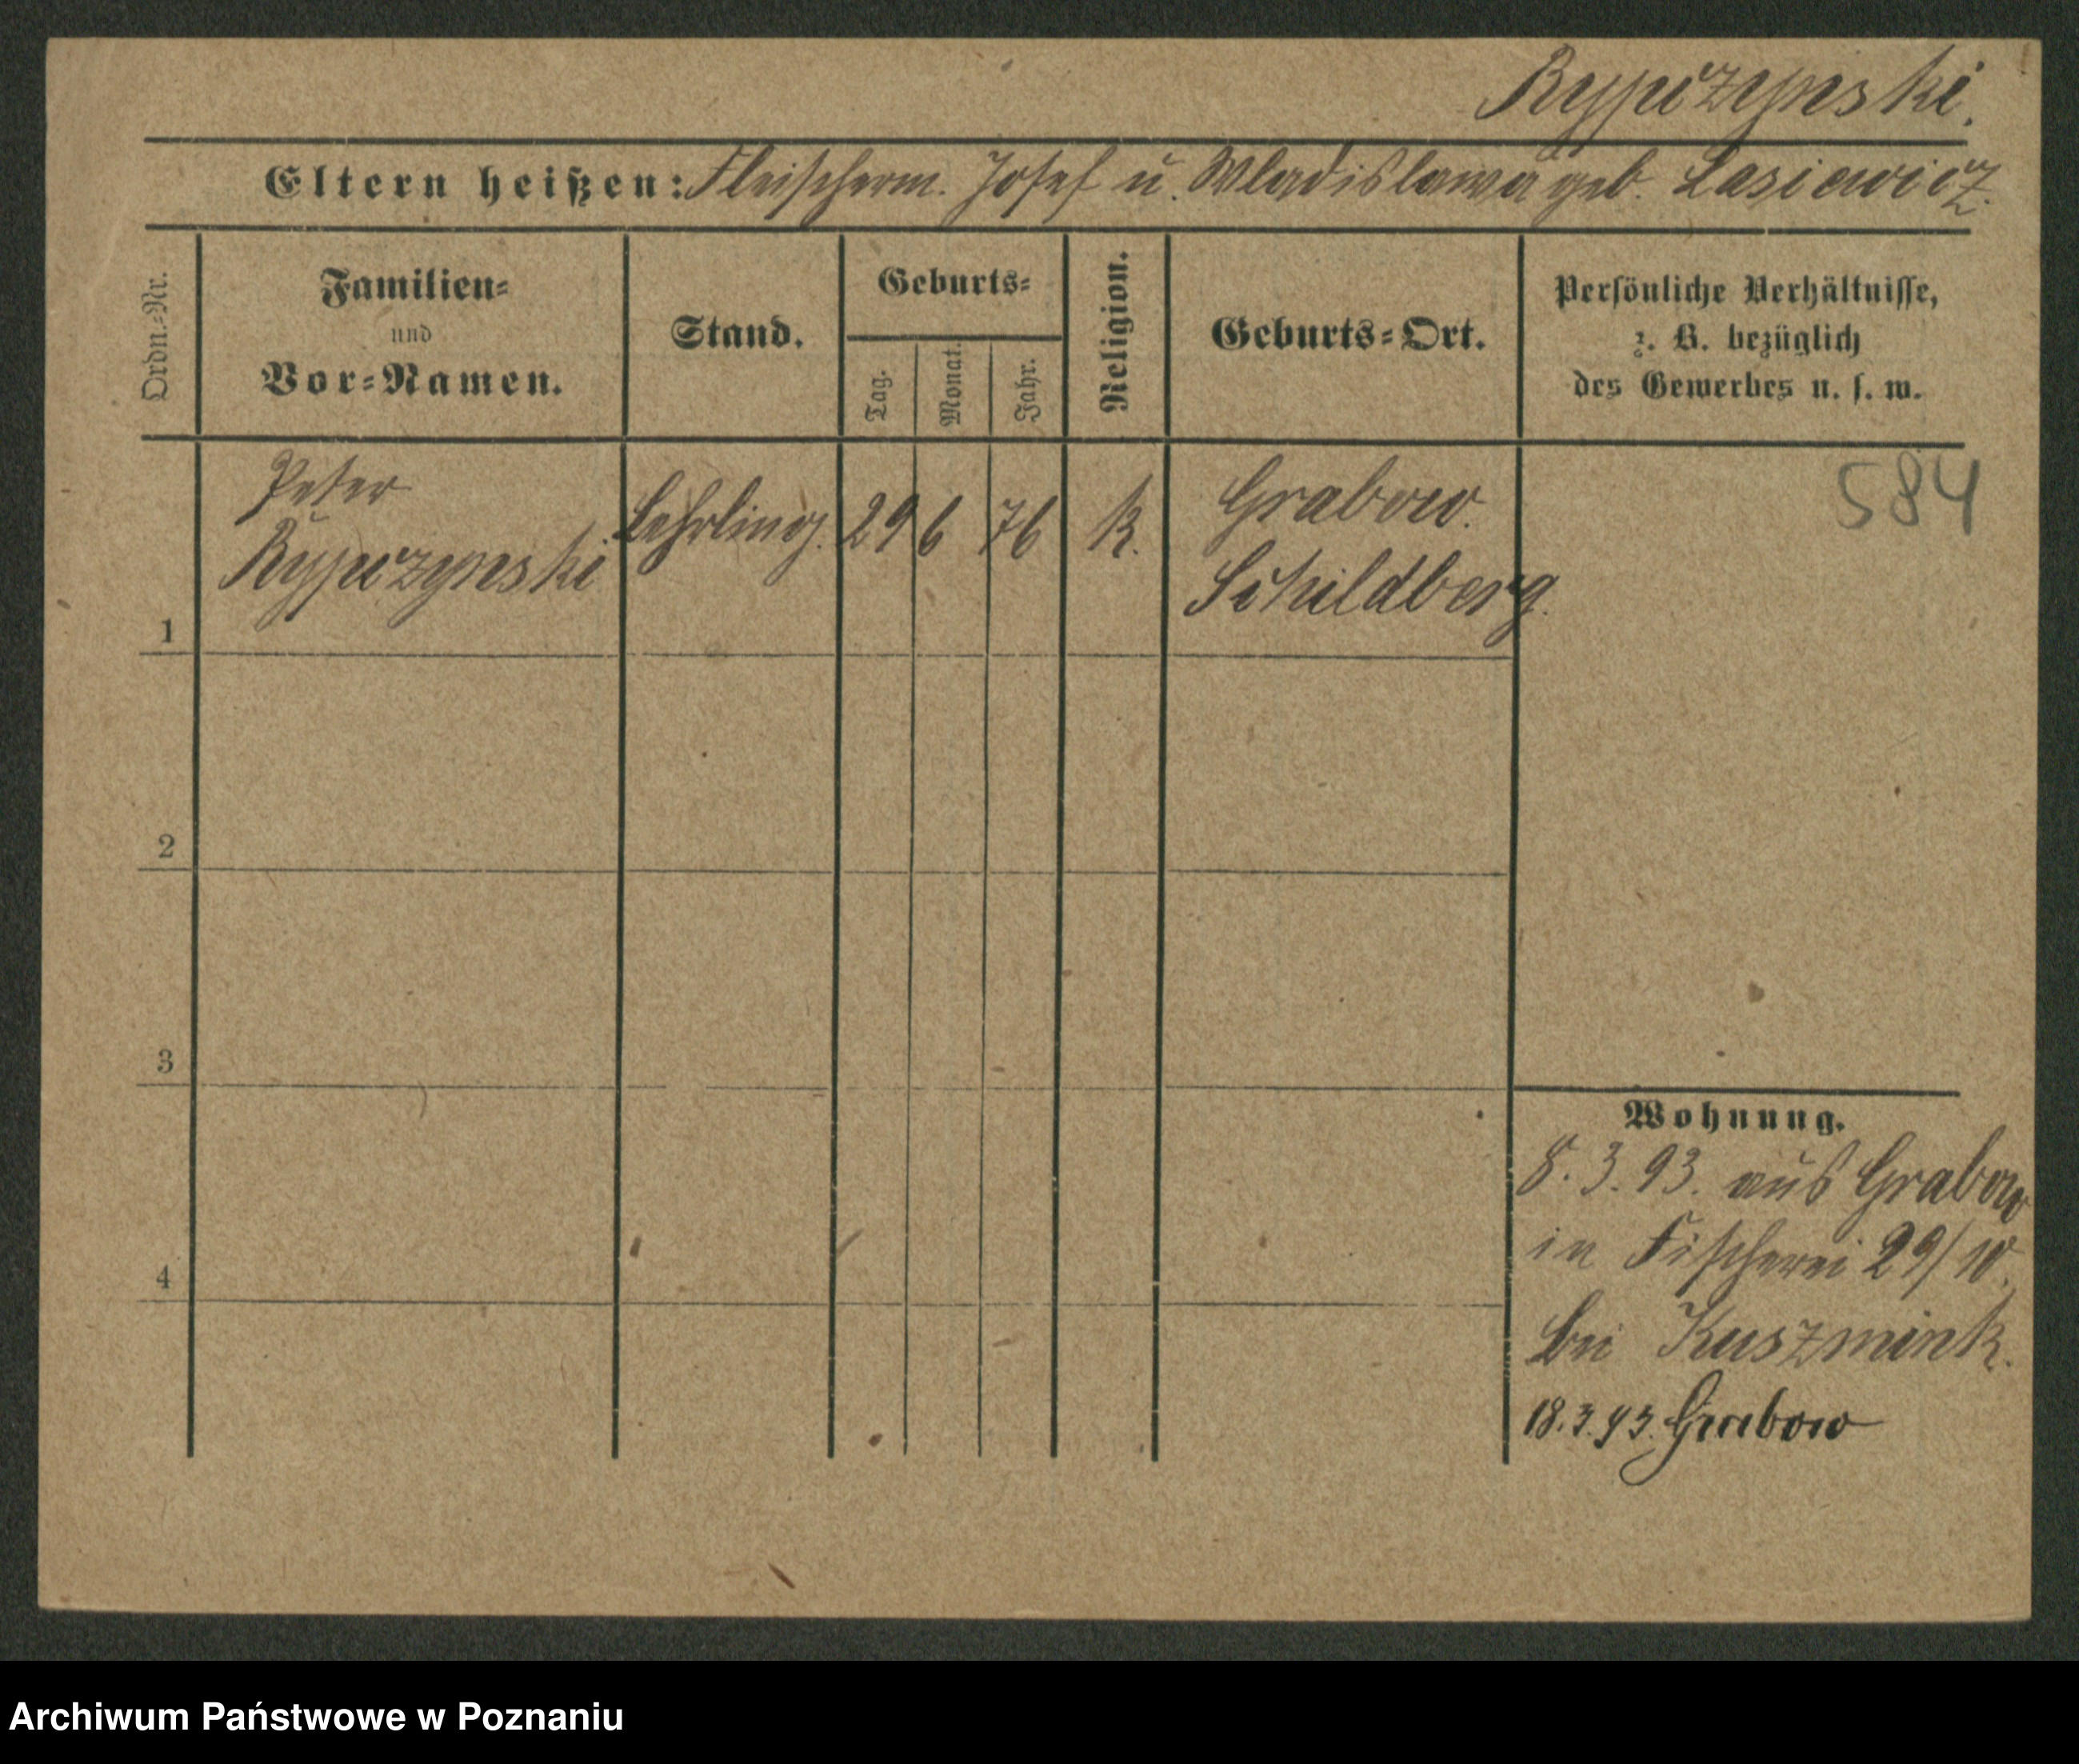 Rypczynski.
Eltern heißen: Fleischerm. Josef u. Wladislawa geb. Lasiewicz.
Ordn.-Nr.
Familien-
und
Vor-Namen.
Stand.
Geburts-
Tag.
Monat.
Jahr.
Religion.
Geburts-Ort.
Persönliche Verhältnisse,
z. B. bezüglich
des Gewerbes u. s. w.
584
1
Peter
Rypczynski
Lehrling.
29
6
76
K.
Grabow.
Schildberg.
2
3
4
Wohnung.
8. 3. 93. aus Grabow
in Fischerei 29/10.
bei Kuszmink.
18. 3. 93. Grabow
Archiwum Państwowe w Poznaniu